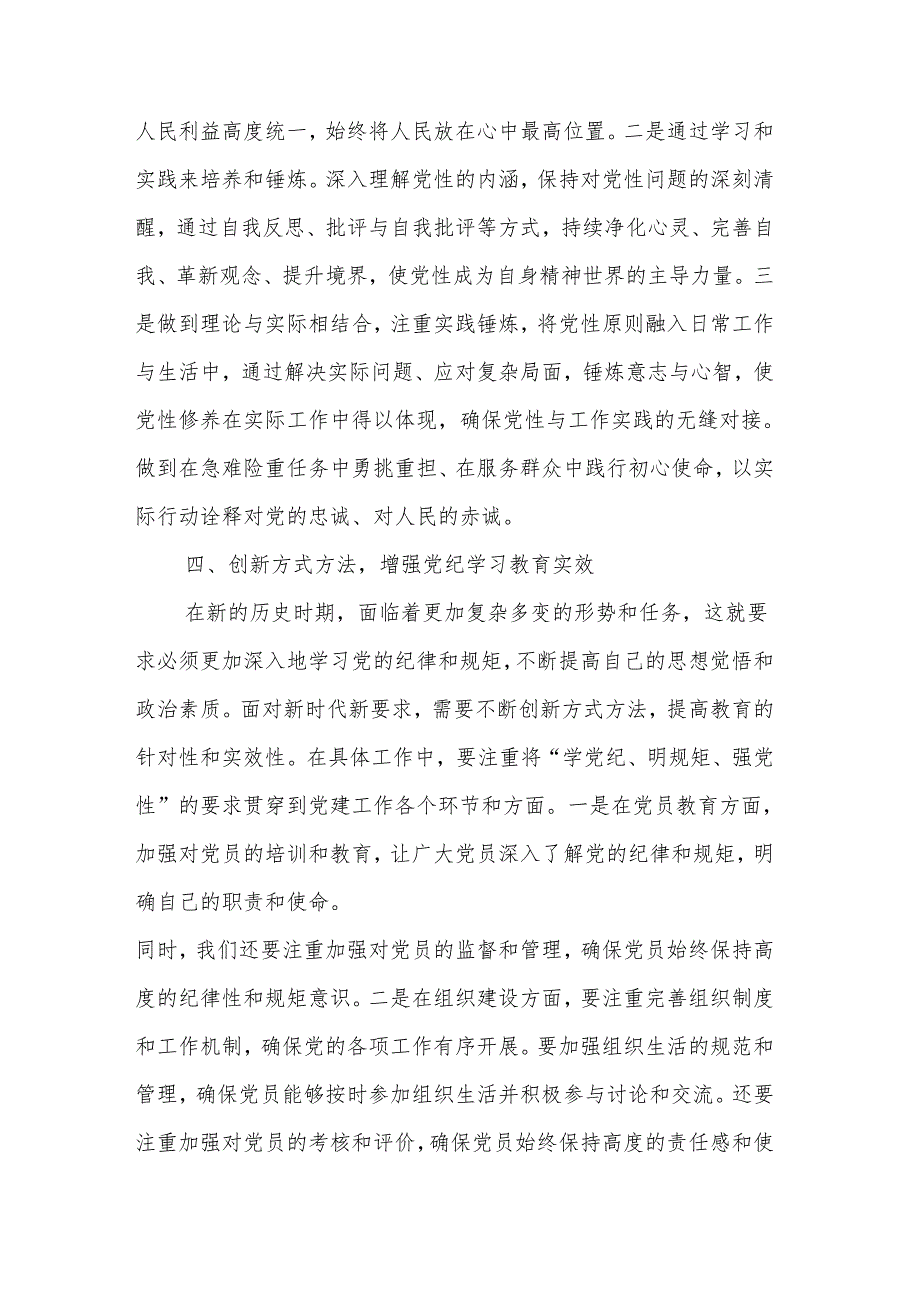 人民利益高度统一，始终将人民放在心中最高位置。二是通过学习和
实践来培养和锤炼。深入理解党性的内涵，保持对党性问题的深刻清
醒，通过自我反思、批评与自我批评等方式，持续净化心灵、完善自
我、革新观念、提升境界，使党性成为自身精神世界的主导力量。三
是做到理论与实际相结合，注重实践锤炼，将党性原则融入日常工作
与生活中，通过解决实际问题、应对复杂局面，锤炼意志与心智，使
党性修养在实际工作中得以体现，确保党性与工作实践的无缝对接。
做到在急难险重任务中勇挑重担、在服务群众中践行初心使命，以实
际行动诠释对党的忠诚、对人民的赤诚。
四、创新方式方法，增强党纪学习教育实效
在新的历史时期，面临着更加复杂多变的形势和任务，这就要
求必须更加深入地学习党的纪律和规矩，不断提高自己的思想觉悟和
政治素质。面对新时代新要求，需要不断创新方式方法，提高教育的
针对性和实效性。在具体工作中，要注重将“学党纪、明规矩、强党
性”的要求贯穿到党建工作各个环节和方面。一是在党员教育方面，
加强对党员的培训和教育，让广大党员深入了解党的纪律和规矩，明
确自己的职责和使命。
同时，我们还要注重加强对党员的监督和管理，确保党员始终保持高
度的纪律性和规矩意识。二是在组织建设方面，要注重完善组织制度
和工作机制，确保党的各项工作有序开展。要加强组织生活的规范和
管理，确保党员能够按时参加组织生活并积极参与讨论和交流。还要
注重加强对党员的考核和评价，确保党员始终保持高度的责任感和使